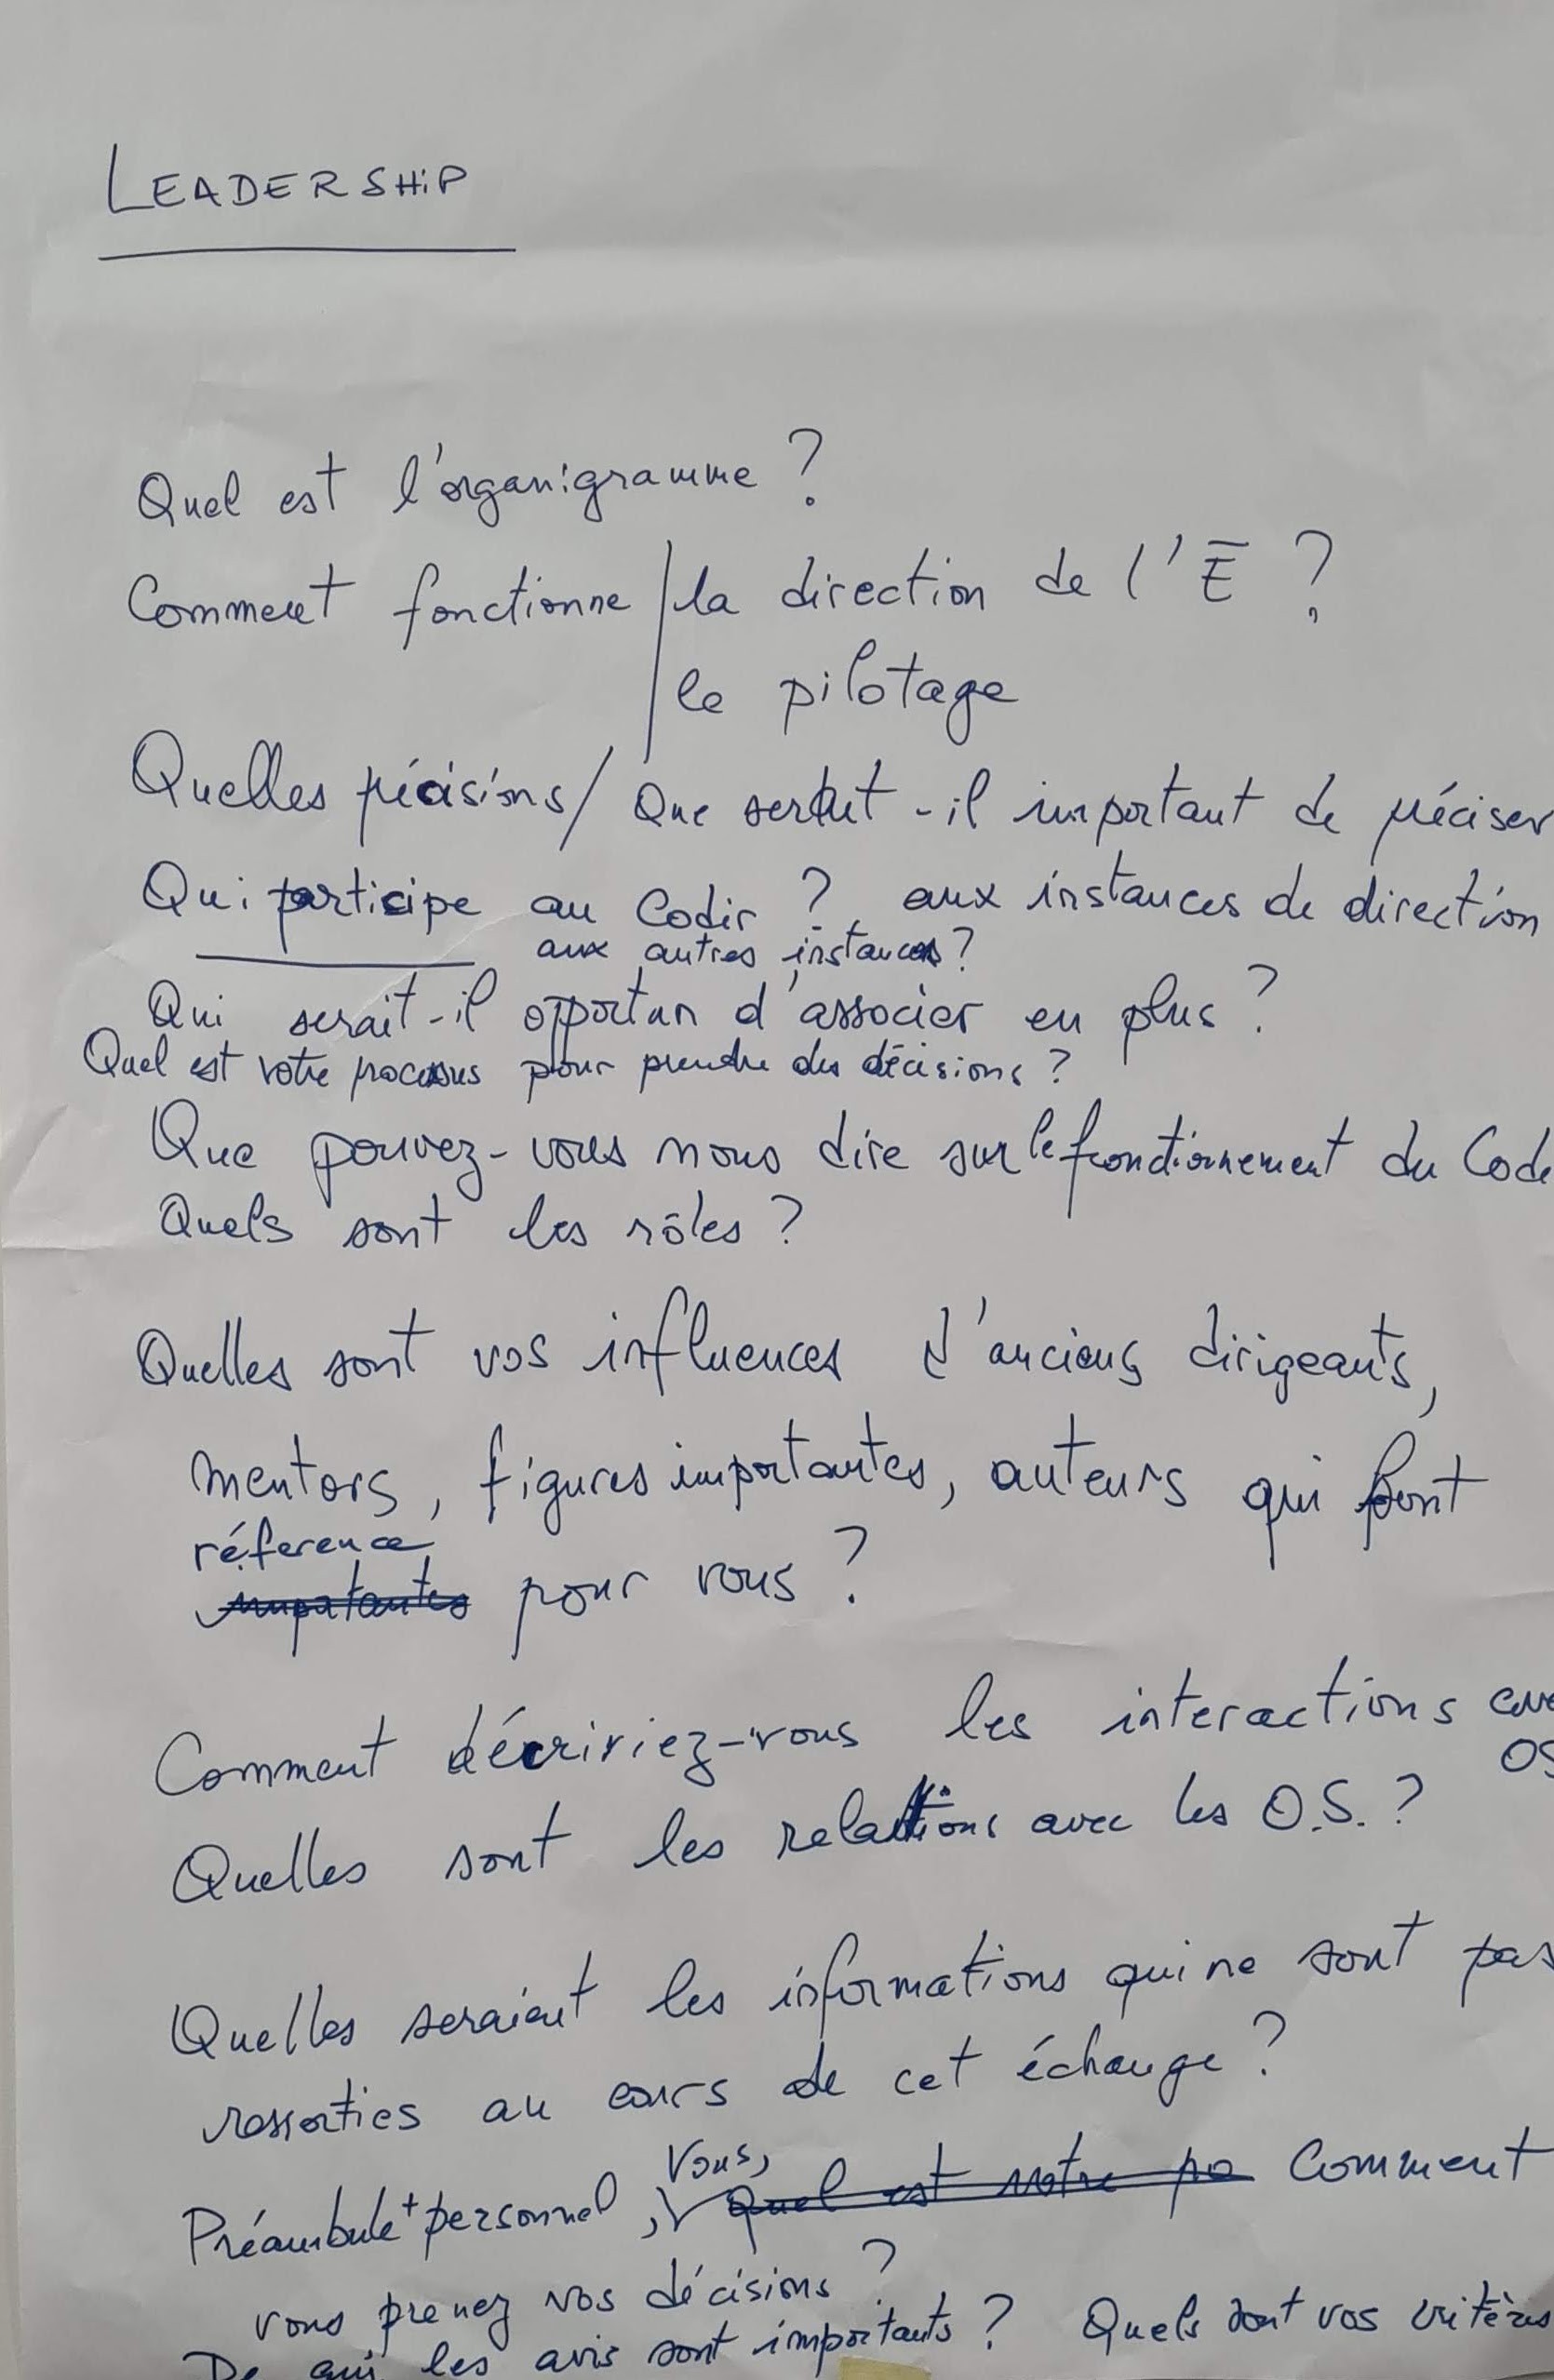 LEADERSHIP
Quel est l'organigramme ?
Comment fonctionne / la direction de l'Ē ?
le pilotage
Quelles précisions / Que serait-il important de préciser
Qui participe au Codir ? aux instances de direction
aux autres instances ?
Qui serait-il opportun d'associer en plus ?
Quel est votre processus pour prendre des décisions ?
Que pouvez-vous nous dire sur le fonctionnement du Code
Quels sont les rôles ?
Quelles sont vos influences d'anciens dirigeants,
mentors, figures importantes, auteurs qui font
référence
importantes pour vous ?
Comment décririez-vous les interactions ave
OS
Quelles sont les relations avec les O.S. ?
Quelles seraient les informations qui ne sont pas
ressorties au cours de cet échange ?
Vous,
Préambule + personnel, Quel est notre po Comment
vous prenez vos décisions ?
De qui les avis sont importants ? Quels sont vos critères